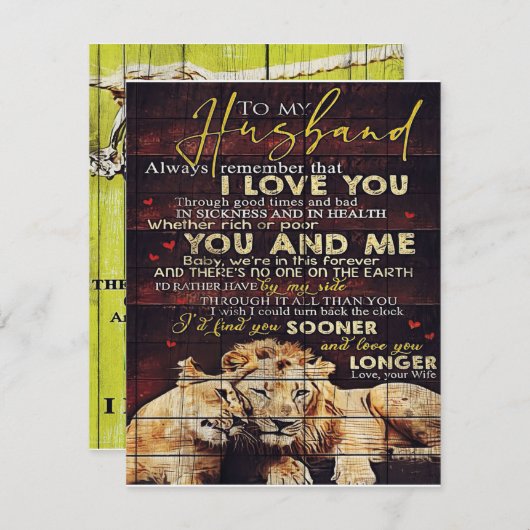 To my
Husband
Always remember that
I LOVE YOU
Through good times and bad
IN SICKNESS AND IN HEALTH
Whether rich or poor
YOU AND ME
Baby, we're in this forever
AND THERE'S NO ONE ON THE EARTH
I'D RATHER HAVE by my side
THROUGH IT ALL THAN YOU
I wish I could turn back the clock
I'd find you SOONER
and love you
LONGER
Love, your Wife
THE
A
I